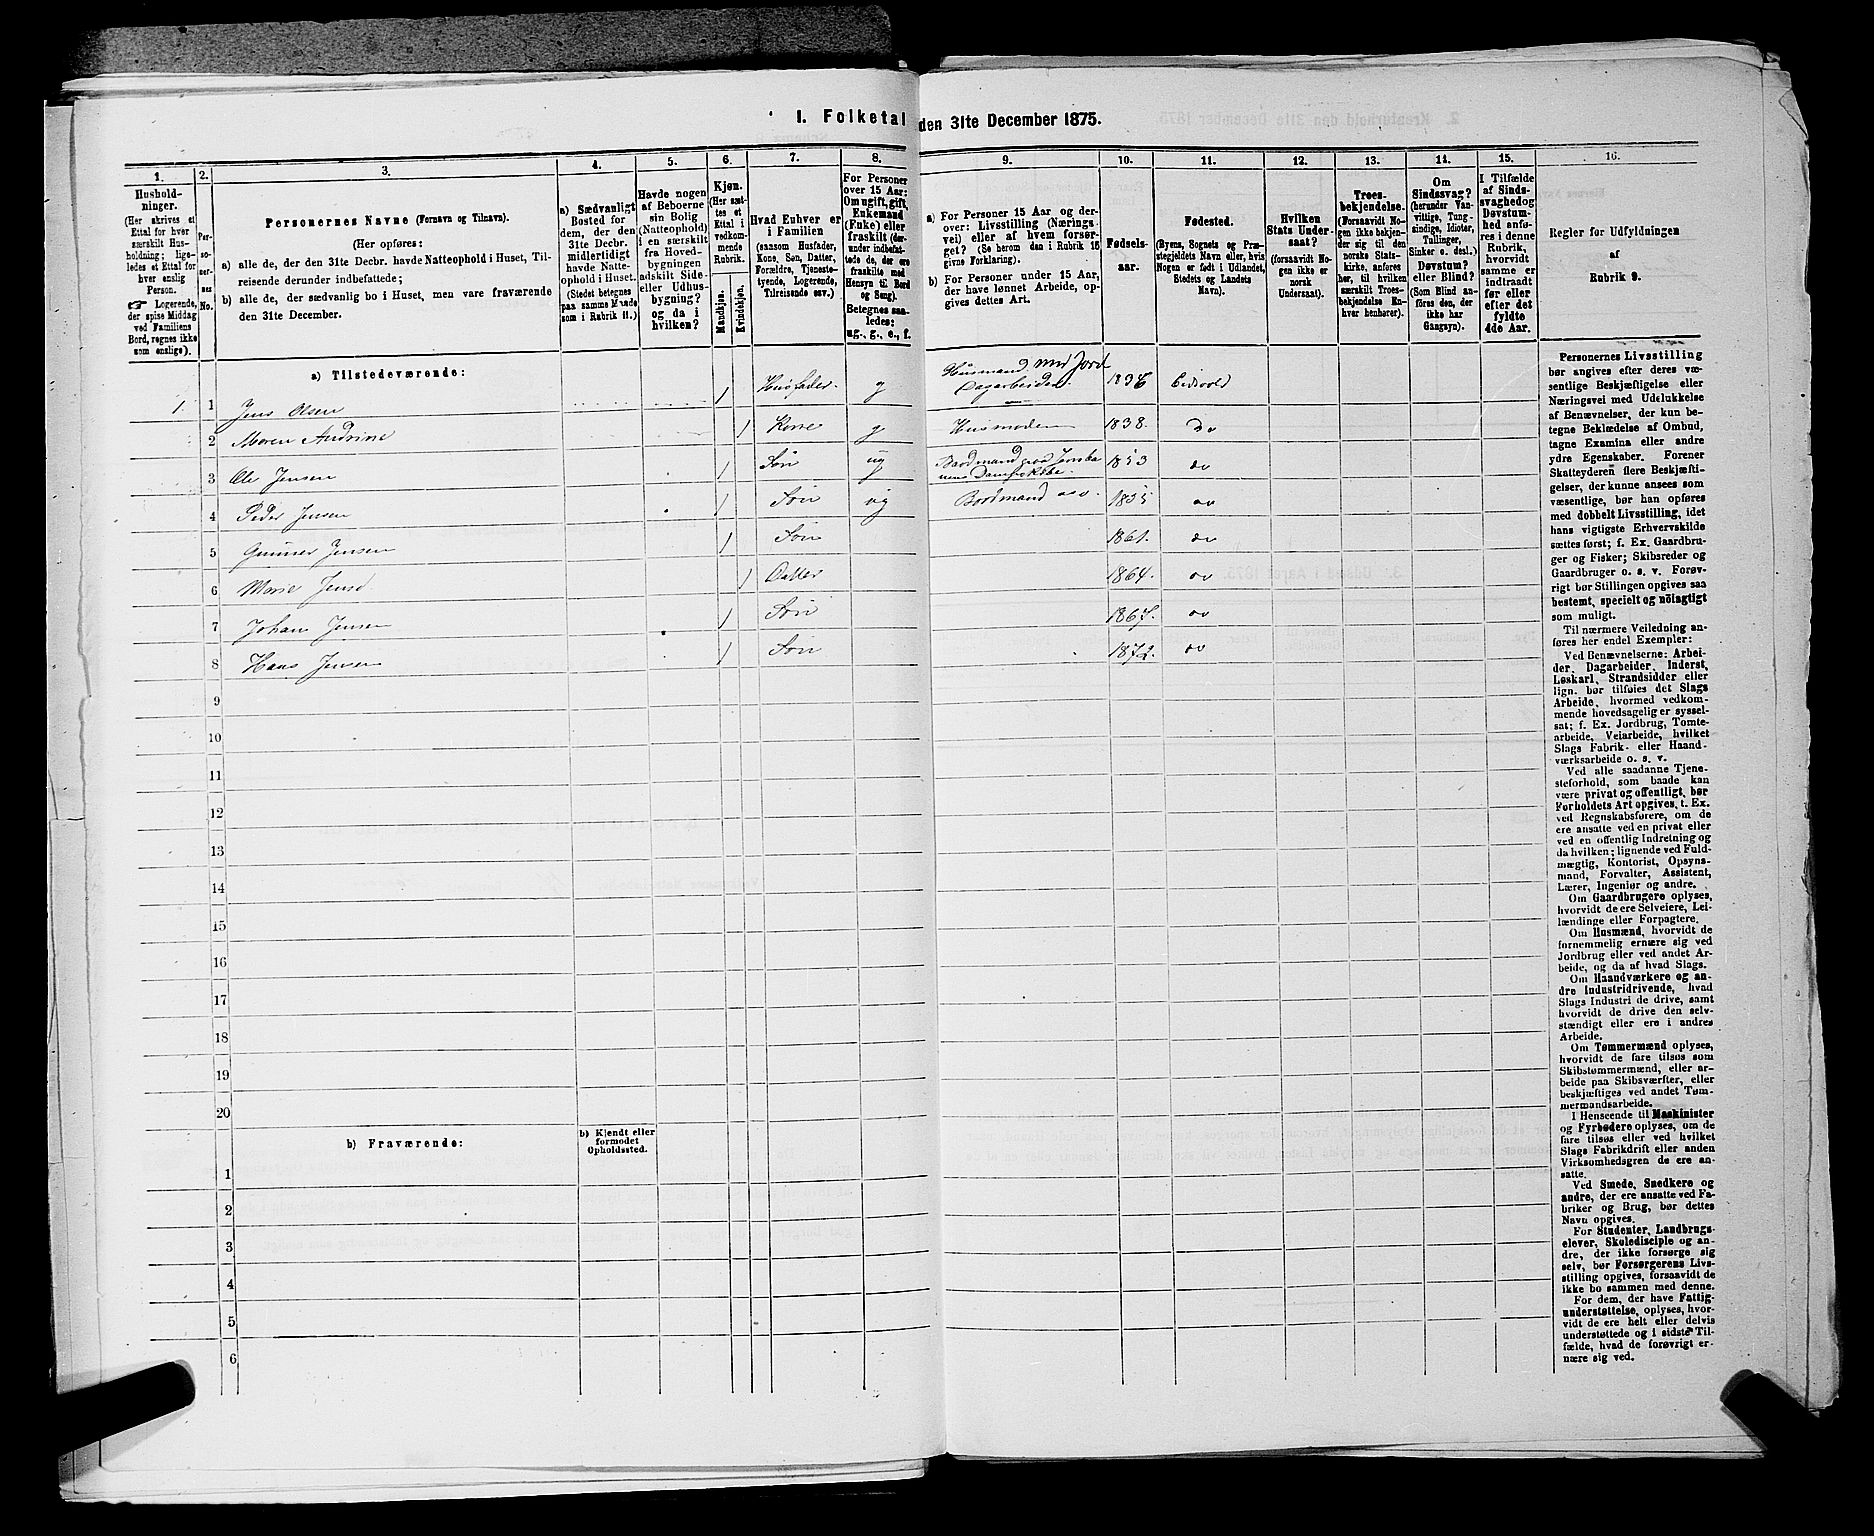 I. Folketal den 31te December 1875.
1.
2.
3.
4.
5.
6.
7.
8.
9.
10.
11.
12.
13.
14.
15.
16.
Hushold-
ninger.
(Her skrives et
Ettal for hver
særskilt Hus-
holdning; lige-
ledes et Ettal for
hver enslig
Person.
☞ Logerende,
der spise Middag
ved Familiens
Bord, regnes ikke
som enslige).
Per-
so-
ner-
nes
No.
Personernes Navne (Fornavn og Tilnavn).
(Her opføres:
a) alle de, der den 31te Decbr. havde Natteophold i Huset, Til-
reisende derunder indbefattede;
b) alle de, der sædvanlig bo i Huset, men vare fraværende
den 31te December.
a) Sædvanligt
Bosted for
dem, der den
31te Decbr.
midlertidigt
havde Natte-
ophold i Huset.
(Stedet betegnes
paa samme Maade
som i Rubrik 11.)
Havde nogen
af Beboerne
sin Bolig
(Natteophold)
i en særskilt
fra Hoved-
bygningen
adskilt Side-
eller Udhus-
bygning?
og da i
hvilken?
Kjøn.
(Her sæt-
tes et
Ettal i
vedkom-
mende
Rubrik.
Mandkjøn.
Kvindekjøn.
Hvad Enhver er
i Familien
(saasom Husfader,
Kone, Søn, Datter,
Forældre, Tjeneste-
tyende, Logerende,
Tilreisende osv.)
For Personer
over 15 Aar:
Om ugift, gift,
Enkemand
(Enke) eller
fraskilt (der-
under indbefat-
tede de, der ere
fraskilte med
Hensyn til Bord
og Seng).
Betegnes saa-
ledes:
ug., g., e., f.
a) For Personer 15 Aar og der-
over: Livsstilling (Nærings-
vei) eller af hvem forsør-
get? (Se herom den i Rubrik 16
givne Forklaring).
b) For Personer under 15 Aar,
der have lønnet Arbeide, op-
gives dettes Art.
Fødsels-
aar.
Fødested.
(Byens, Sognets og Præ-
stegjeldets Navn eller, hvis
Nogen er født i Udlandet,
Stedets og Landets
Navn).
Hvilken
Stats Under-
saat?
(forsaavidt No-
gen ikke er
norsk
Undersaat).
Troes-
bekjendelse.
(Forsaavidt No-
gen ikke bekjen-
der sig til den
norske Stats-
kirke, anføres
her, til hvilken
særskilt Troes-
bekjendelse En-
hver henhører).
Om
Sindssvag?
(herunder Van-
vittige, Tung-
sindige, Idioter,
Tullinger,
Sinker o. desl.)
Døvstum?
eller Blind?
(Som Blind an-
føres den, der
ikke har
Gangsyn).
I Tilfælde
af Sinds-
svaghed og
Døvstum-
hed anfø-
res i denne
Rubrik,
hvorvidt
samme er
indtraadt
før eller
efter det
fyldte
4de Aar.
Regler for Udfyldningen
af
Rubrik 9.
a) Tilstedeværende:
1. 1 Jens Olsen 1 Husfader g Husmand med Jord Dagarbeider 1836 Eidsvold
2 Maren Andrine 1 Kone g Husmoder 1838. Do
3 Ole Jensen 1 Søn ug 1853 do
4 Peder Jensen 1 Søn ug Bordmand 1855 do
5 Gunner Jensen 1 Søn 1861. do
6 Marie Jensd 1 Datter 1864. do
7 Johan Jensen 1 Søn 1867. do
8 Hans Jensen 1 Søn 1872. do
9
10
11
12
13
14
15
16
17
18
19
20
b) Fraværende:
b) Kjendt eller
formodet
Opholdssted.
1
2
3
4
5
6
Personernes Livsstilling
bør angives efter deres væ-
sentlige Beskjæftigelse eller
Næringsvei med Udelukkelse
af Benævnelser, der kun be-
tegne Beklædelse af Ombud,
tagne Examina eller andre
ydre Egenskaber. Forener
Skatteyderen flere Beskjæfti-
gelser, der kunne ansees som
væsentlige, bør han opføres
med dobbelt Livsstilling, idet
hans vigtigste Erhvervskilde
sættes først; f. Ex. Gaardbru-
ger og Fisker; Skibsreder og
Gaardbruger o. s. v. Forøv-
rigt bør Stillingen opgives saa
bestemt, specielt og nöiagtigt
som muligt.
Til nærmere Veiledning an-
føres her endel Exempler:
Ved Benævnelserne: Arbei-
der, Dagarbeider, Inderst,
Løskarl, Strandsidder eller
lign. bør tilføies det Slags
Arbeide, hvormed vedkom-
mende hovedsagelig er syssel-
sat; f. Ex. Jordbrug, Tomte-
arbeide, Veiarbeide, hvilket
Slags Fabrik- eller Haand-
værksarbeide o. s. v.
Ved alle saadanne Tjene-
steforhold, som baade kan
være privat og offentligt, bør
Forholdets Art opgives, t. Ex.
ved Regnskabsførere, om de
ere ansatte ved en privat eller
ved en offentlig Indretning og
da hvilken; lignende ved Fuld-
mægtig, Kontorist, Opsyns-
mand, Forvalter, Assistent,
Lærer, Ingeniør og andre.
Om Gaardbrugere oplyses,
hvorvidt de ere Selveiere, Lei-
lændinge eller Forpagtere.
Om Husmænd, hvorvidt de
fornemmelig ernære sig ved
Jordbrug eller ved andet Ar-
beide, og da af hvad Slags.
Om Haandværkere og an-
dre Industridrivende, hvad
Slags Industri de drive, samt
hvorvidt de drive den selv-
stændigt eller ere i andres
Arbeide.
Om Tømmermænd oplyses,
hvorvidt de fare tilsøs som
Skibstømmermænd, eller ar-
beide paa Skibsværfter, eller
beskjæftiges ved andet Tøm-
mermandsarbeide.
I Henseende til Maskinister
og Fyrbødere oplyses, om de
fare tilsøs eller ved hvilket
Slags Fabrikdrift eller anden
Virksomhedsgren de ere an-
satte.
Ved Smede, Snedkere og
andre, der ere ansatte ved Fa-
briker og Brug, bør dettes
Navn opgives.
For Studenter, Landbrugs-
elever, Skoledisciple og an-
dre, der ikke forsørge sig
selv, bør Forsørgerens Livs-
stilling opgives, forsaavidt de
ikke bo sammen med denne.
For dem, der have Fattig-
understøttelse, oplyses, hvor-
vidt de ere helt eller delvis
understøttede og i sidste Til-
fælde, hvad de forøvrigt er-
nære sig ved.